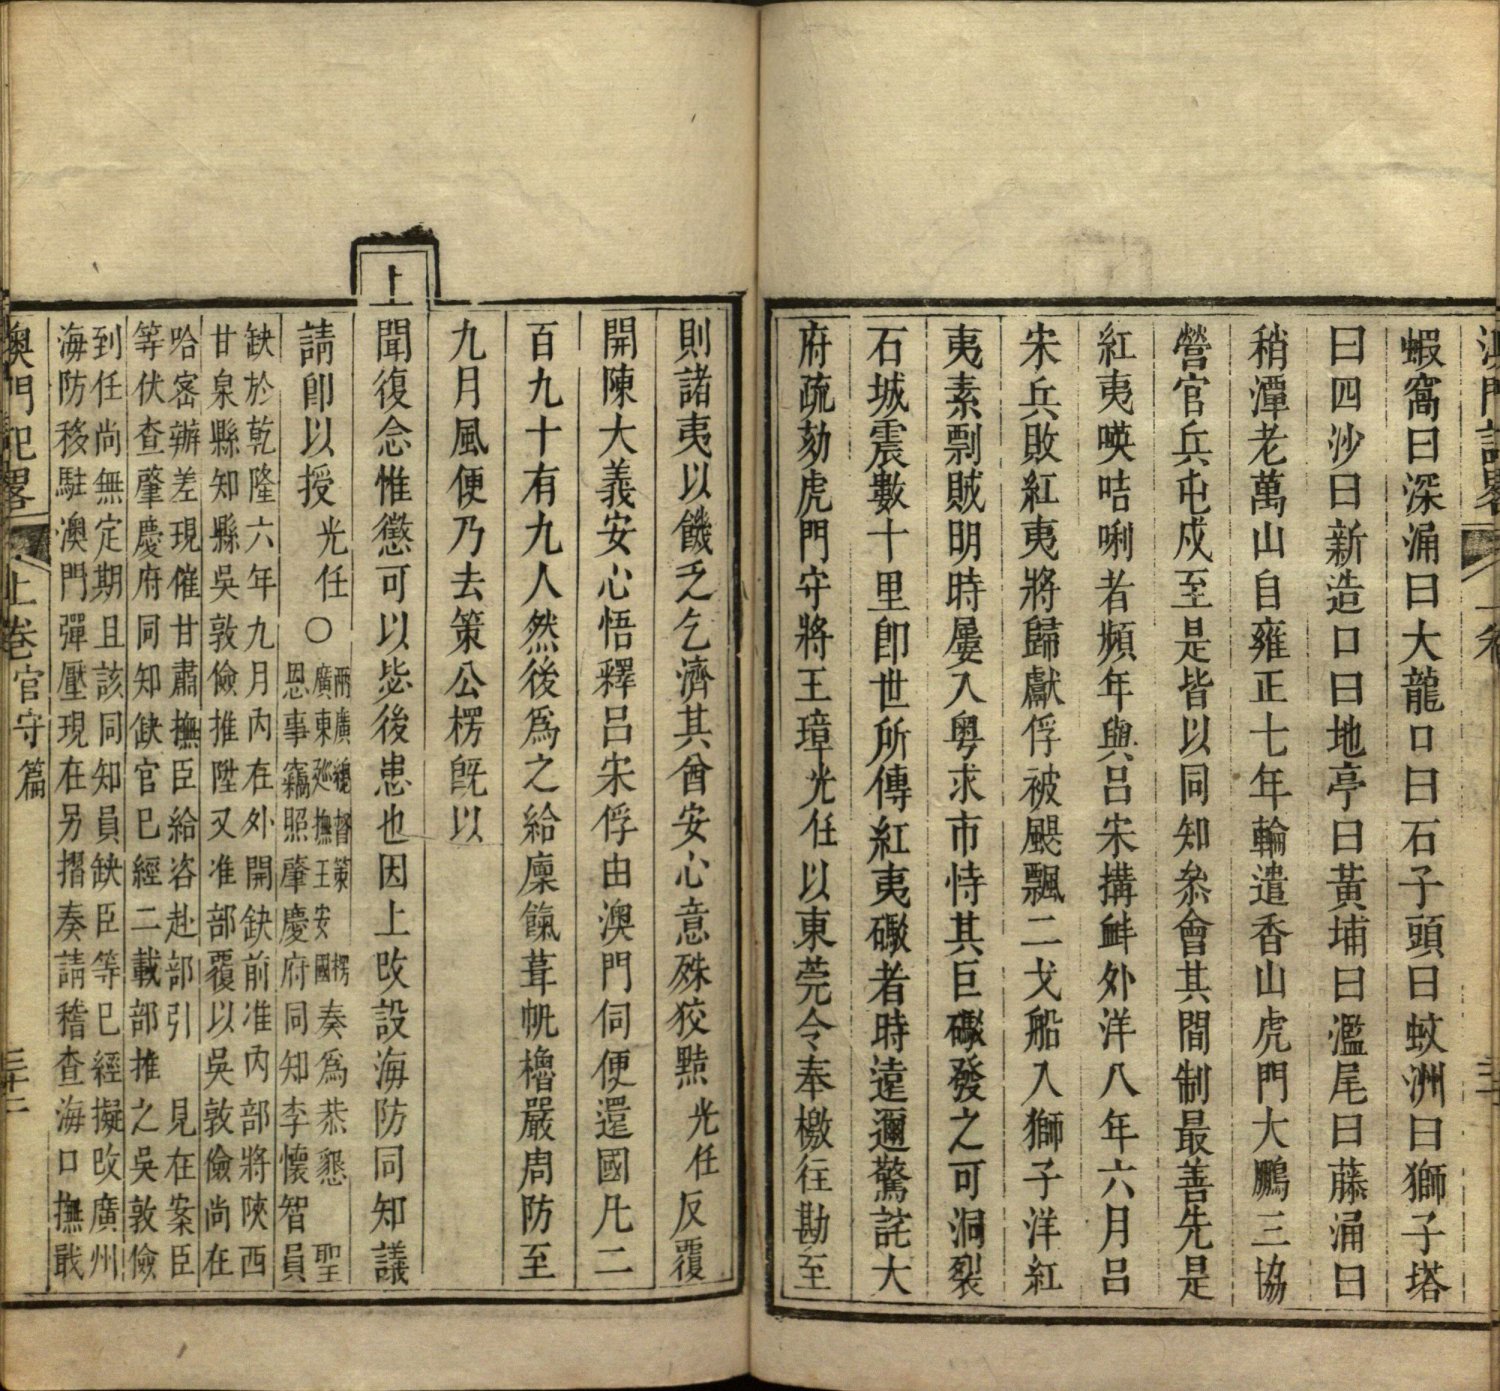 澳門記畧
上卷
蝦窩曰深涌曰大龍口曰石子頭曰蚊洲曰獅子塔
曰四沙曰新造口曰地亭曰黃埔曰濫尾曰藤涌曰
稍潭老萬山自雍正七年輪遣香山虎門大鵬三協
營官兵屯戍至是皆以同知叅會其間制最善先是
紅夷𠸄咭唎者頻年與呂宋搆衅外洋八年六月呂
宋兵敗紅夷將歸獻俘被颶飄二戈船入獅子洋紅
夷素剽賊明時屢入粤求市恃其巨礮發之可洞裂
石城震數十里卽世所傳紅夷礮者時遠邇驚詫大
府疏劾虎門守將王璋光任以東莞令奉檄往勘至
則諸夷以饑乏乞濟其酋安心意殊狡黠光任反覆
開陳大義安心悟釋呂宋俘由澳門伺便還國凡二
百九十有九人然後爲之給廩餼葺帆櫓嚴周防至
九月風便乃去策公楞旣以
上
聞復念惟懲可以毖後患也因上改設海防同知議
請卽以授光任○兩廣總督策楞
廣東廵撫王安國奏爲恭懇 聖
恩事竊照肇慶府同知李懷智員
缺於乾隆六年九月內在外開缺前准內部將陝西
甘泉縣知縣吳敦儉推陞又准部覆以吳敦儉尚在
哈宻辦差現催甘肅撫臣給咨赴部引 見在案臣
等伏查肇慶府同知缺官已經二載部推之吳敦儉
到任尚無定期且該同知員缺臣等已經擬改廣州
海防移駐澳門彈壓現在另摺奏請稽查海口撫戢
澳門記畧
上卷官守篇
三十二